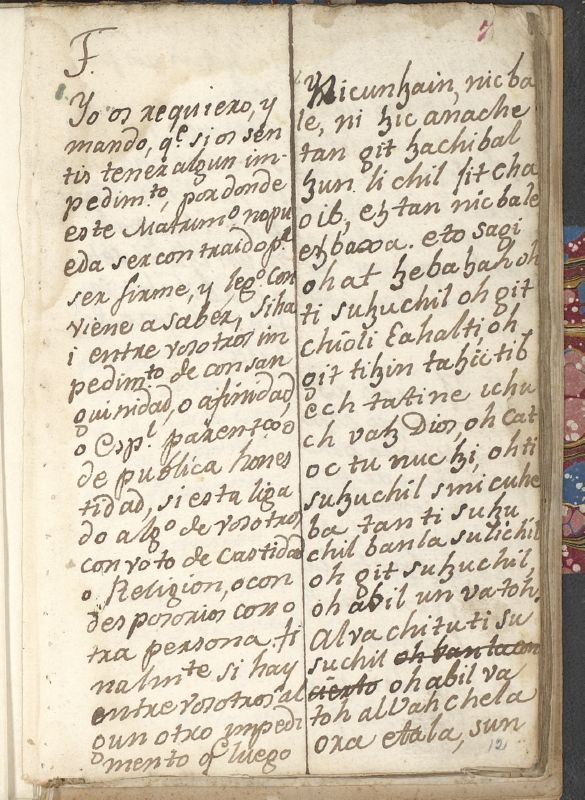 F.
Yo os requiero, y
mando, qe. si os sen
tis tener algun im-
pedim.to, por donde
este Matrim.o no pu
eda ser contraido p.a
ser firme, y leg.o con
viene a saber, si ha
i entre vosotros im
pedim.to de consan
guinidad, o afinidad,
o Esp.l parent.co o
de publica hones
tidad, si esta liga
do alg.o de vosotros
con voto de Castidad
o Religion, o con
desposorios con o
tra persona. fi
nalm.te si hay
entre vosotros al
gun otro impedi
mento q.e luego
7
le, ni hic anache
tan git hachibal
hun li chil sit cha
oib, eh tan nic bale
eh baxa. eto sagi
ohat hebahah oh
ti suhuchil oh git
chioli Eahalti, oh
git tihin tahii tib
ech tatine uhu
ch vah Dios, oh Cat
oc tu nuc hi, oh ti
suhuchil smi cuhe
ba tan ti suhu
chil banla sulichil
oh git suhuchil,
oh abil un vatoh.
Alvachi tuti su
suchil oh banla con
cierto oh abil va
toh allvahchela
ora etala, sun
12